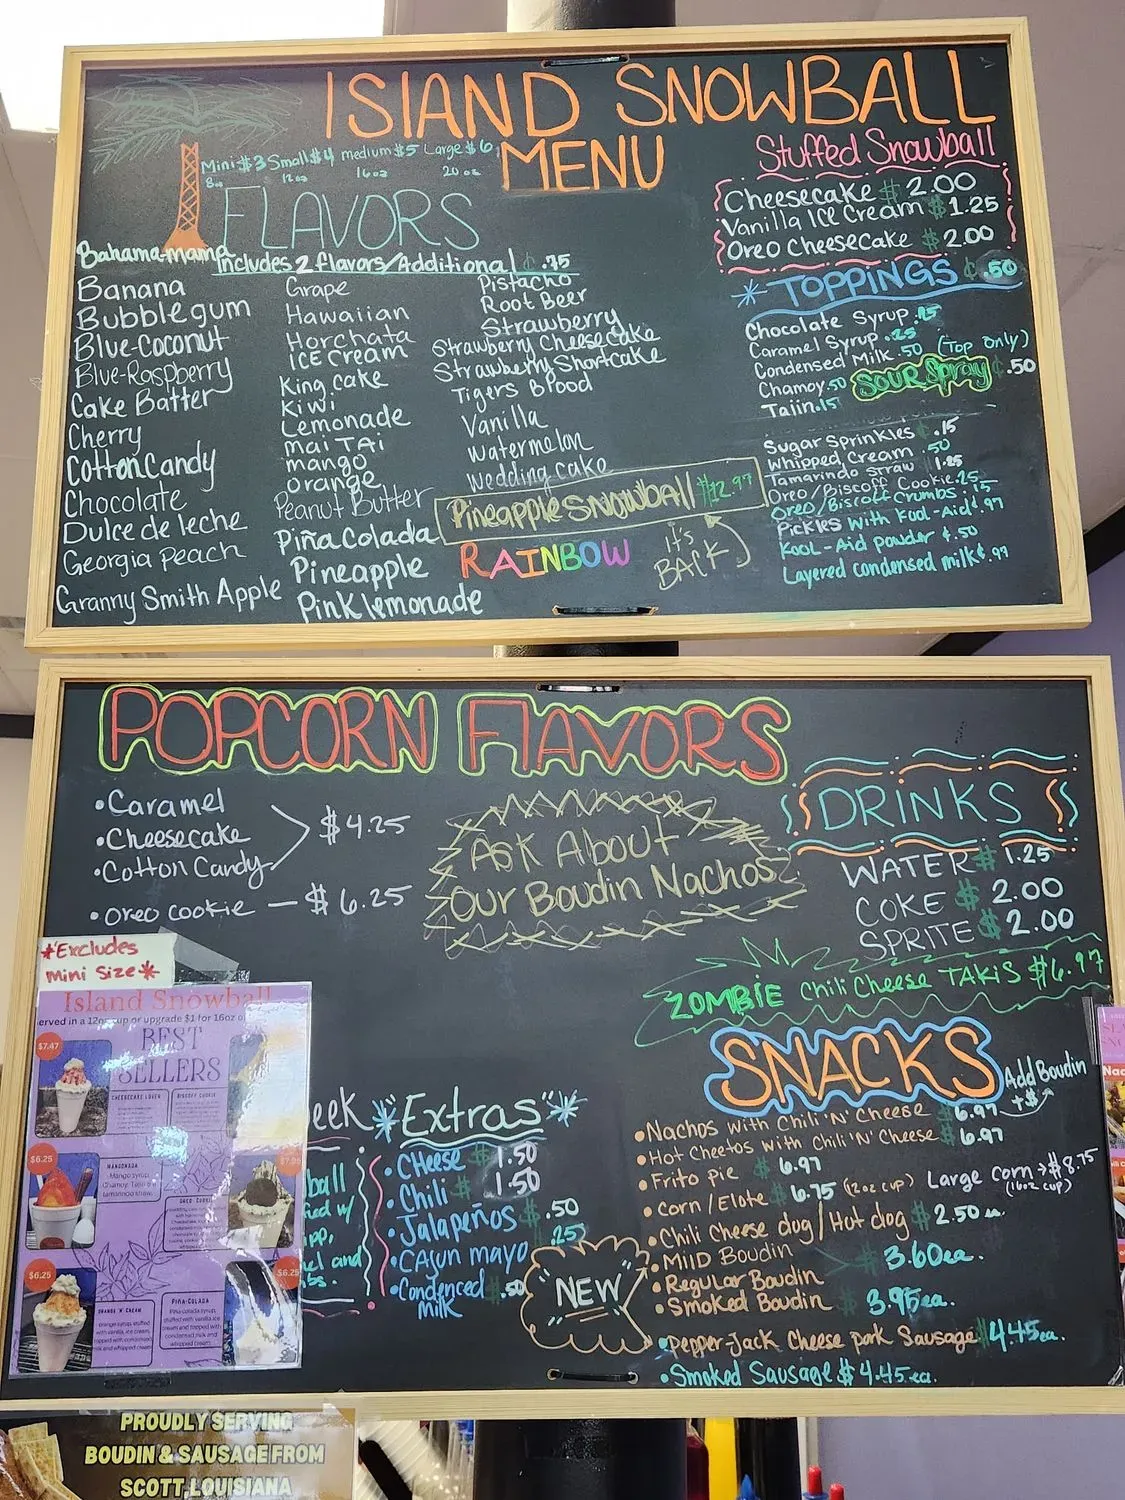 ISLAND SNOWBALL
MENU
Mini $3 Small $4 medium $5 Large $6
8oz 12oz 16oz 20oz
FLAVORS
Includes 2 flavors/Additional ¢.75
Bahama-mama
Banana
Bubblegum
Blue-Coconut
Blue-Raspberry
Cake Batter
Cherry
Cotton Candy
Chocolate
Dulce de leche
Georgia Peach
Granny Smith Apple
Grape
Hawaiian
Horchata
ICE Cream
King cake
Kiwi
Lemonade
mai TAi
mango
orange
Peanut Butter
Piña Colada
Pineapple
Pink lemonade
Pistacho
Root Beer
Strawberry
Strawberry Cheesecake
Strawberry Shortcake
Tigers Blood
Vanilla
Watermelon
Wedding cake
Pineapple SNOWBALL $12.97
RAINBOW
it's
BACK
Stuffed Snowball
Cheesecake $ 2.00
Vanilla ICE Cream $ 1.25
Oreo Cheesecake $ 2.00
* TOPPINGS ¢.50
Chocolate Syrup .15
Caramel Syrup .25
Condensed Milk .50 (Top only)
Chamoy .50 SOUR Spray ¢.50
Tajin .15
Sugar Sprinkles .15
Whipped Cream .50
Tamarindo Straw 1.25
Oreo/Biscoff Cookie .25
Oreo/Biscoff Crumbs .15
Pickles with Kool-Aid ¢.97
Kool-Aid powder ¢.50
Layered condensed milk ¢.97
POPCORN FLAVORS
•Caramel
•Cheesecake
•Cotton Candy
$4.25
•Oreo cookie — $6.25
Ask About
Our Boudin Nachos
DRINKS
WATER $ 1.25
COKE $ 2.00
SPRITE $ 2.00
ZOMBIE Chili Cheese TAKIS $6.97
SNACKS
Add Boudin
+$
•Nachos with Chili 'N' Cheese $ 6.97
•Hot Cheetos with Chili 'N' Cheese $ 6.97
•Frito pie $ 6.97
•Corn/Elote $ 6.75 (12oz cup) Large Corn → $8.75
(16oz cup)
•Chili Cheese dog/Hot dog $ 2.50 ea.
•Mild Boudin
•Regular Boudin $ 3.60 ea.
•Smoked Boudin $ 3.95 ea.
•Pepper-Jack Cheese pork Sausage $4.45 ea.
•Smoked Sausage $ 4.45 ea.
NEW
*"Extras"*
•CHeese $ 1.50
•Chili $ 1.50
•Jalapeños $ .50
•CAjun mayo .25
•Condenced $.50
Milk
eek
ball
w/
and
*Excludes
mini Size*
Island Snowball
erved in a 12oz cup or upgrade $1 for 16oz
BEST
SELLERS
$7.47
CHEESECAKE LOVER
BISCOFF COOKIE
$6.25
MANGONADA
Mango syrup,
Chamoy, Tajin &
tamarindo straw.
OREO COOKIE
$6.25
ORANGE 'N' CREAM
orange syrup, stuffed
with vanilla ice cream,
topped with condensed
milk and whipped cream
PIÑA-COLADA
Piña colada syrup,
stuffed with vanilla ice
cream and topped with
condensed milk and
whipped cream.
$6.25
PROUDLY SERVING
BOUDIN & SAUSAGE FROM
SCOTT, LOUISIANA